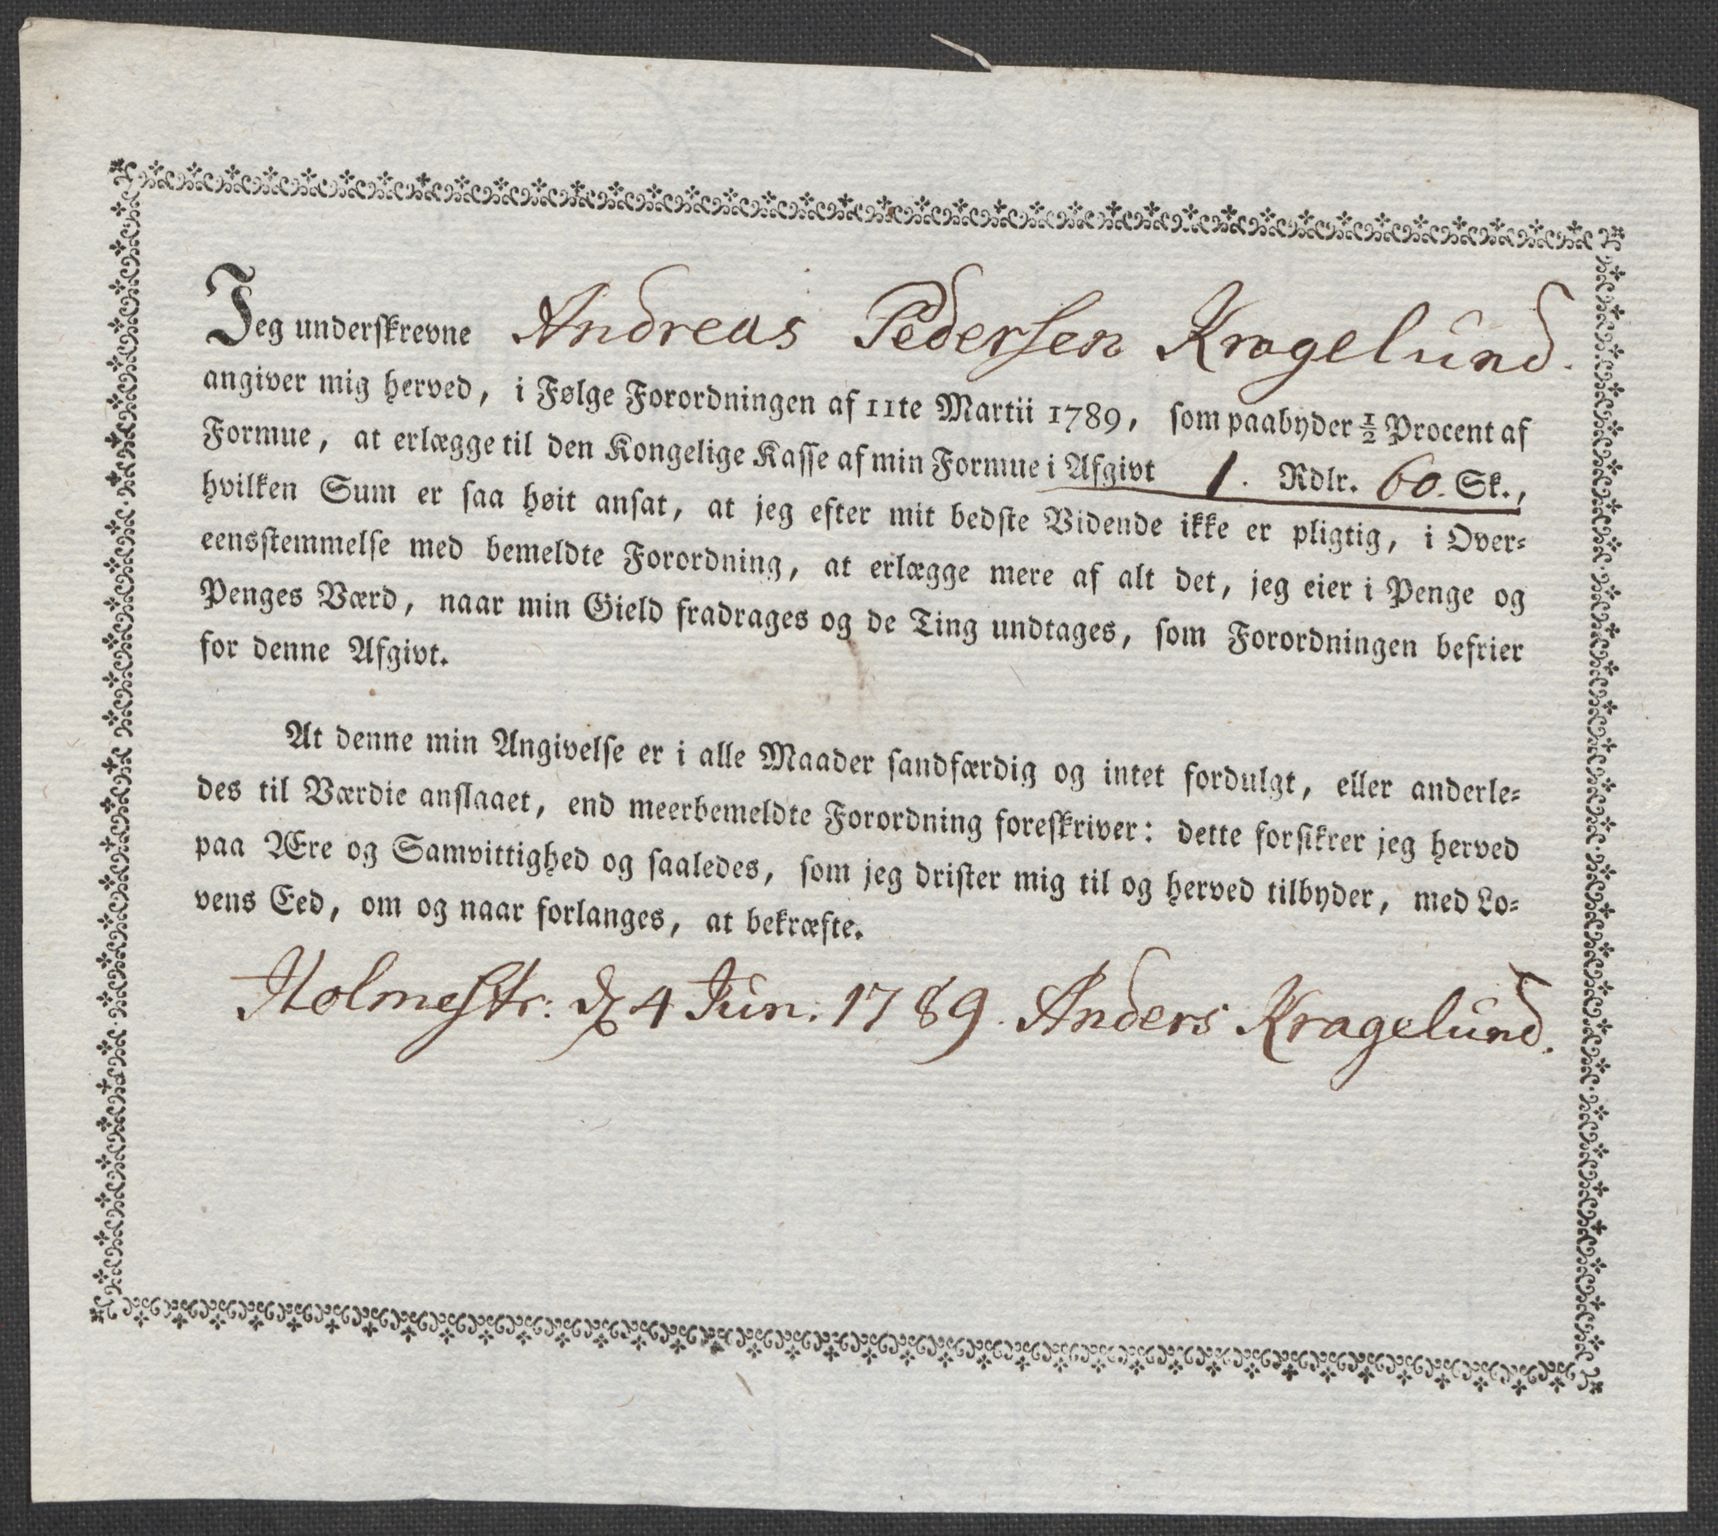 Jeg underskrevne Andreas Pedersen Kragelund.
angiver mig herved, i Følge Forordningen af 11te Martii 1789, som paabyder ½ Procent af
Formue, at erlægge til den Kongelige Kasse af min Formue i Afgivt 1. Rdlr. 60. Sk.,
hvilken Sum er saa høit ansat, at jeg efter mit bedste Vidende ikke er pligtig, i Over-
eensstemmelse med bemeldte Forordning, at erlægge mere af alt det, jeg eier i Penge og
Penges Værd, naar min Gield fradrages og de Ting undtages, som Forordningen befrier
for denne Afgivt.
At denne min Angivelse er i alle Maader sandfærdig og intet fordulgt, eller anderle-
des til Værdie anslaaet, end meerbemeldte Forordning foreskriver: dette forsikrer jeg herved
paa Ære og Samvittighed og saaledes, som jeg drister mig til og herved tilbyder, med Lo-
vens Eed, om og naar forlanges, at bekræfte.
Holmestr: d 4 Jun: 1789. Anders Kragelund.